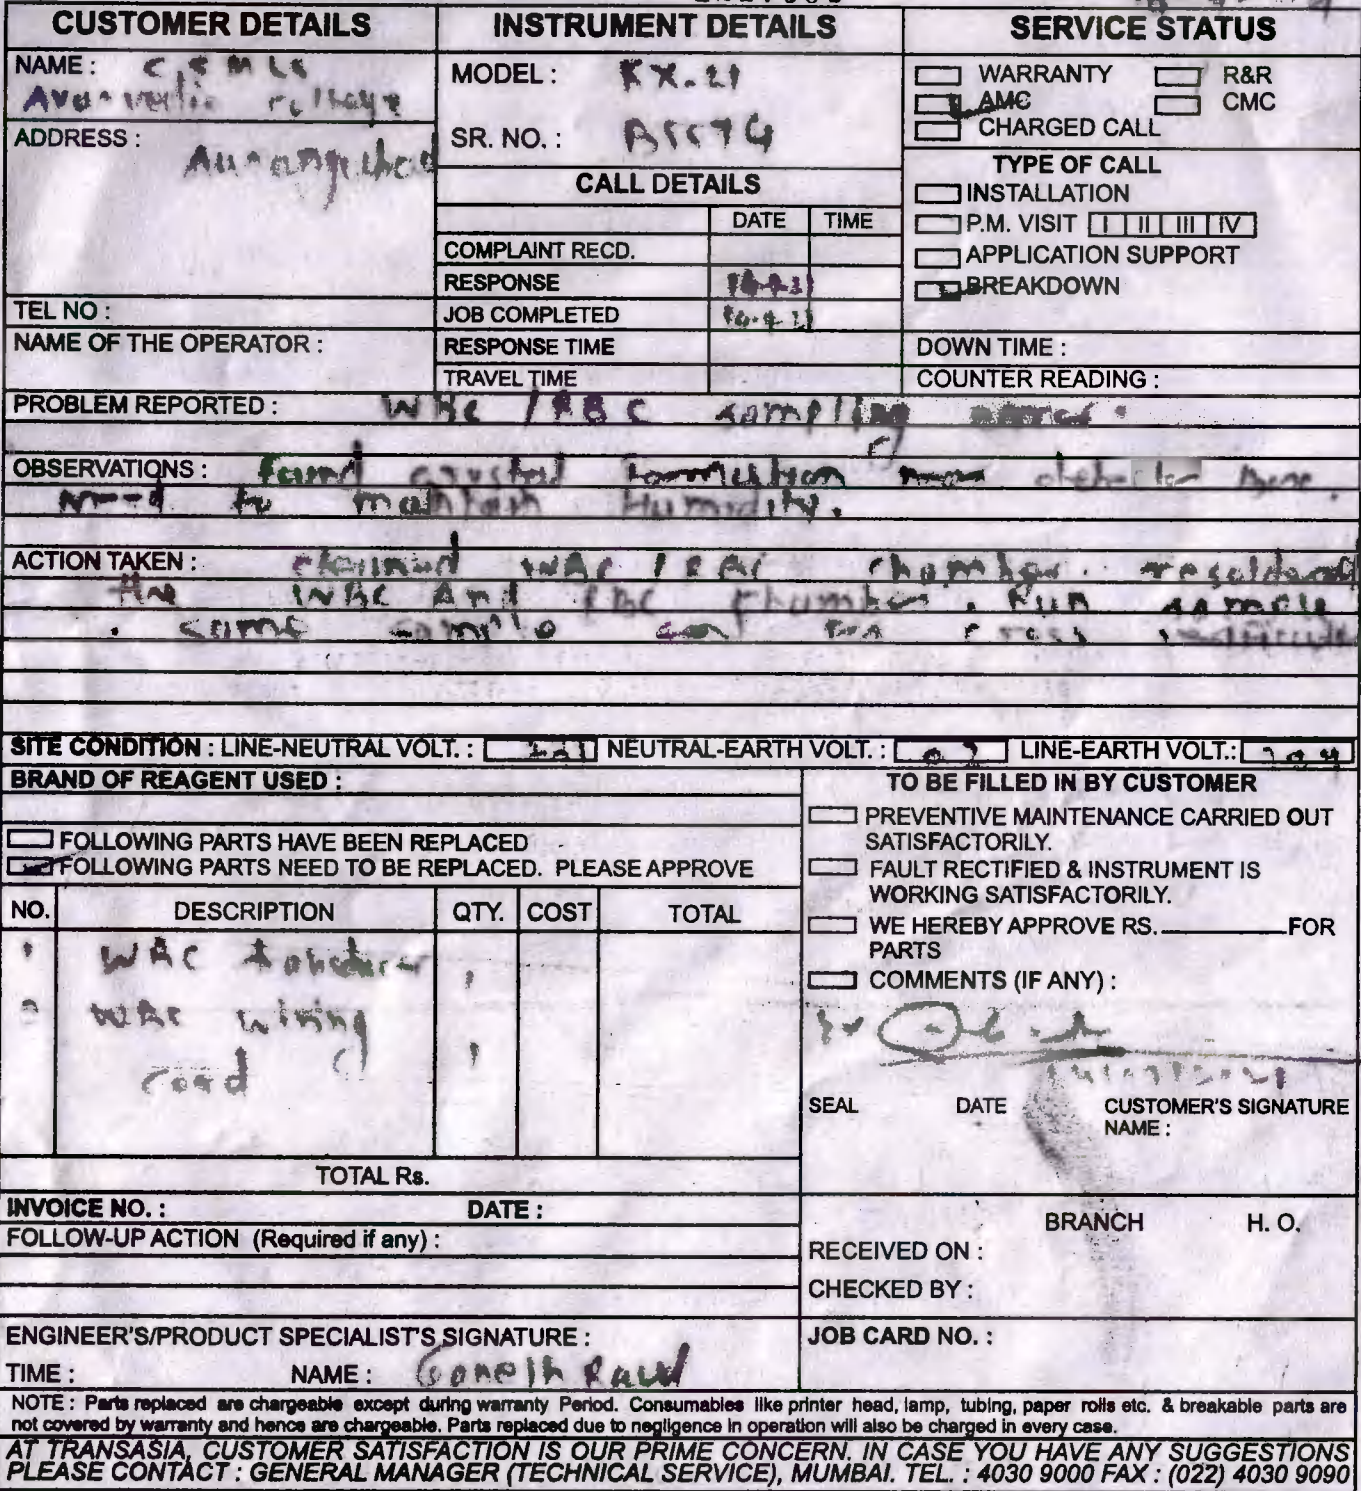 CUSTOMER DETAILS
NAME : CSMSS
Ayurvedic college
ADDRESS :
Aurangabad
TEL NO :
NAME OF THE OPERATOR :
INSTRUMENT DETAILS
MODEL : KX-21
SR. NO. :
CALL DETAILS
DATE TIME
COMPLAINT RECD.
RESPONSE
JOB COMPLETED
RESPONSE TIME
TRAVEL TIME
SERVICE STATUS
WARRANTY R&R
AMC CMC
CHARGED CALL
TYPE OF CALL
INSTALLATION
P.M. VISIT I II III IV
APPLICATION SUPPORT
BREAKDOWN
DOWN TIME :
COUNTER READING :
PROBLEM REPORTED : WBC / RBC sampling error.
OBSERVATIONS : Found crystal formation
need to maintain Humidity.
ACTION TAKEN : cleaned WBC / RBC chamber. resoldered
the WBC And RBC chamber. Run sample
. same sample
SITE CONDITION : LINE-NEUTRAL VOLT. : NEUTRAL-EARTH VOLT. : LINE-EARTH VOLT.:
BRAND OF REAGENT USED :
FOLLOWING PARTS HAVE BEEN REPLACED
FOLLOWING PARTS NEED TO BE REPLACED. PLEASE APPROVE
NO. DESCRIPTION QTY. COST TOTAL
WBC
WBC wiring
TOTAL Rs.
INVOICE NO. : DATE :
FOLLOW-UP ACTION (Required if any) :
ENGINEER'S/PRODUCT SPECIALIST'S SIGNATURE :
TIME : NAME :
TO BE FILLED IN BY CUSTOMER
PREVENTIVE MAINTENANCE CARRIED OUT
SATISFACTORILY.
FAULT RECTIFIED & INSTRUMENT IS
WORKING SATISFACTORILY.
WE HEREBY APPROVE RS. FOR
PARTS
COMMENTS (IF ANY) :
SEAL DATE CUSTOMER'S SIGNATURE
NAME :
BRANCH H. O.
RECEIVED ON :
CHECKED BY :
JOB CARD NO. :
NOTE : Parts replaced are chargeable except during warranty Period. Consumables like printer head, lamp, tubing, paper rolls etc. & breakable parts are
not covered by warranty and hence are chargeable. Parts replaced due to negligence in operation will also be charged in every case.
AT TRANSASIA, CUSTOMER SATISFACTION IS OUR PRIME CONCERN. IN CASE YOU HAVE ANY SUGGESTIONS
PLEASE CONTACT : GENERAL MANAGER (TECHNICAL SERVICE), MUMBAI. TEL. : 4030 9000 FAX : (022) 4030 9090